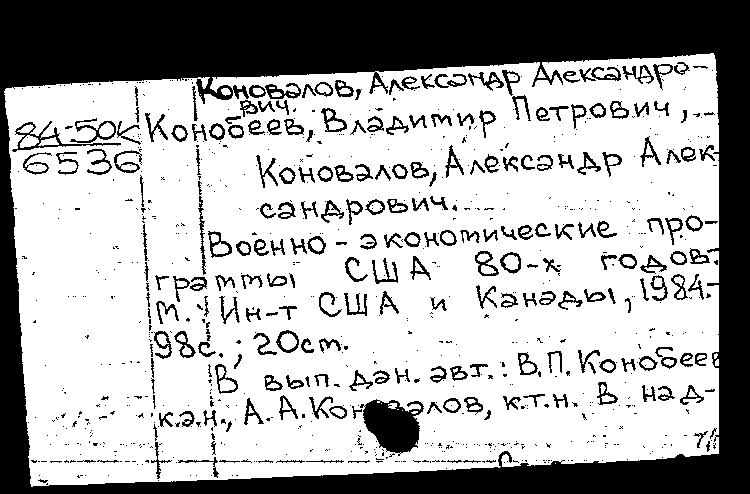 Коновалов, Александр Александро-
вич.
84-50к
6536
Конобеев, Владимир Петрович,
Коновалов, Александр Алек-
сандрович.
Военно-экономические про-
граммы США 80-х годов.
М.: Ин-т США и Канады, 1984.-
98с.; 20см.
В вып. дан. авт.: В.П. Конобеев
к.э.н., А.А. Коновалов, к.т.н. В над-